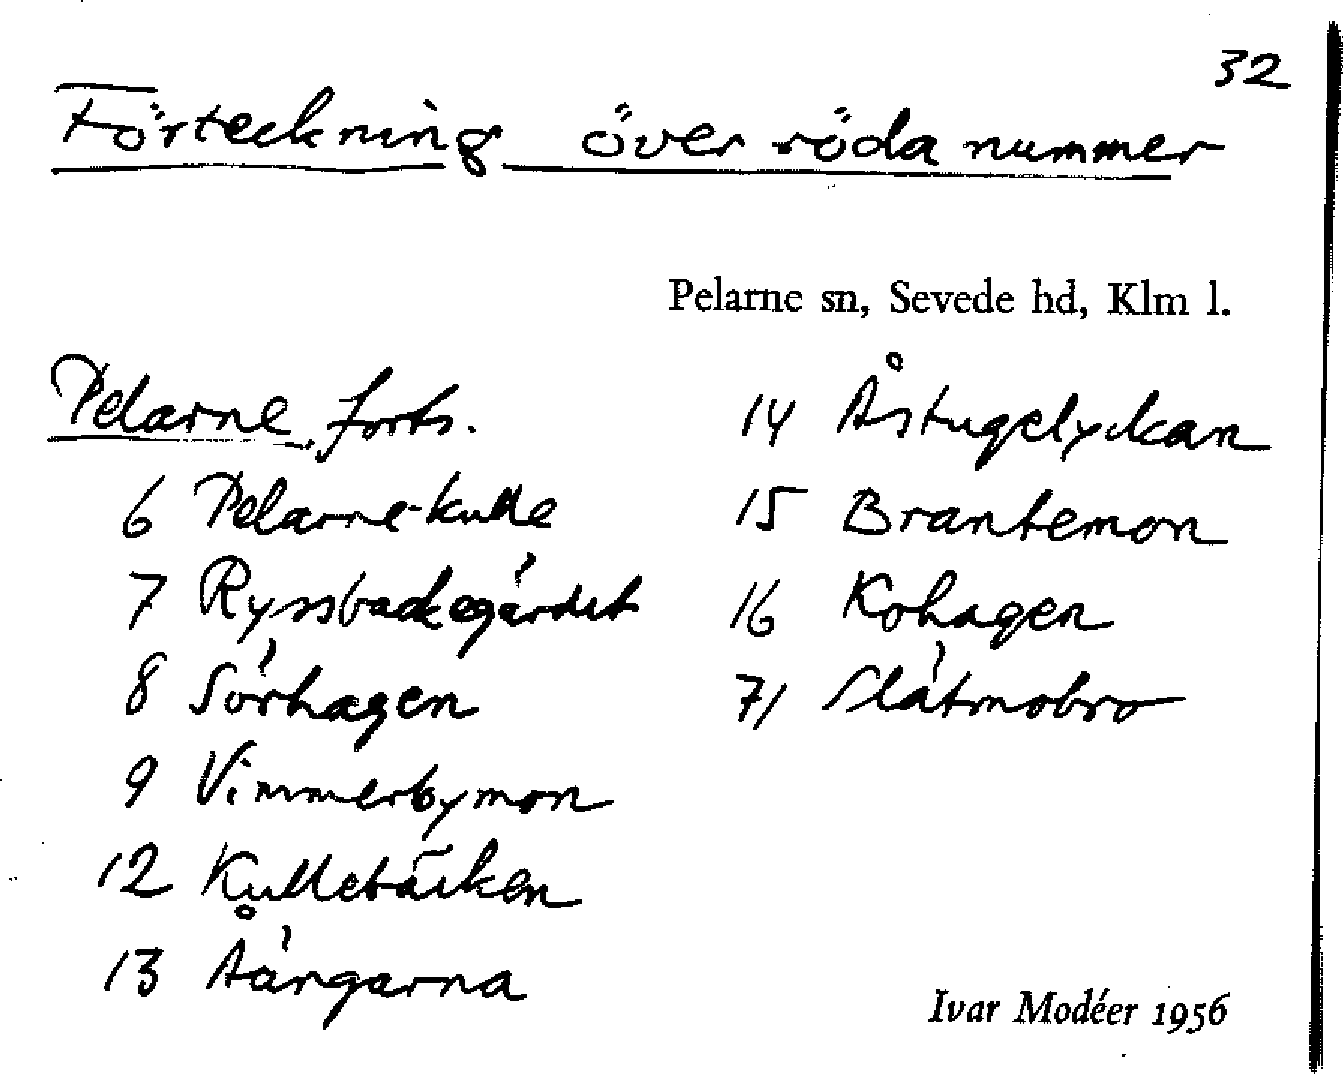 32
Förteckning över röda nummer
Pelarne sn, Sevede hd, Klm l.
Pelarne, forts.
6 Pelarne-kulle
7 Ryssbackegärdet
8 Sörhagen
9 Vimmerbymon
12 Kullebäcken
13 Åängarna
14 Åstugelyckan
15 Brantemon
16 Kohagen
71 Slätmobro
Ivar Modéer 1956